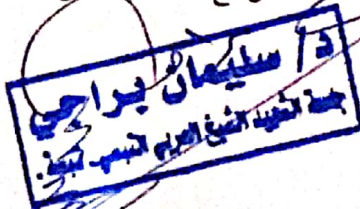 د/ سليمان براحي
جامعة الشهيد الشيخ العربي التبسي تبسة.